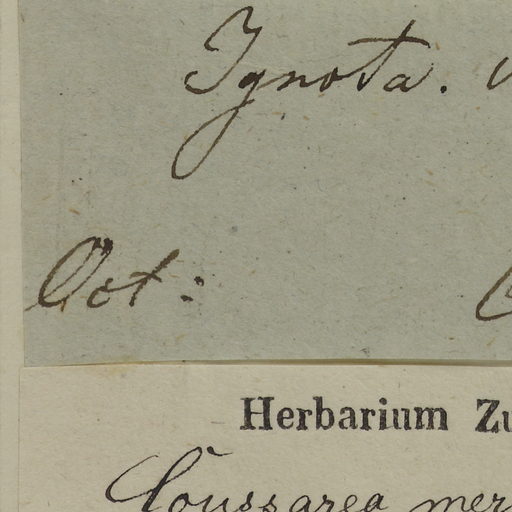 Ignota.
Oct:
Herbarium Zu
Coussarea mer